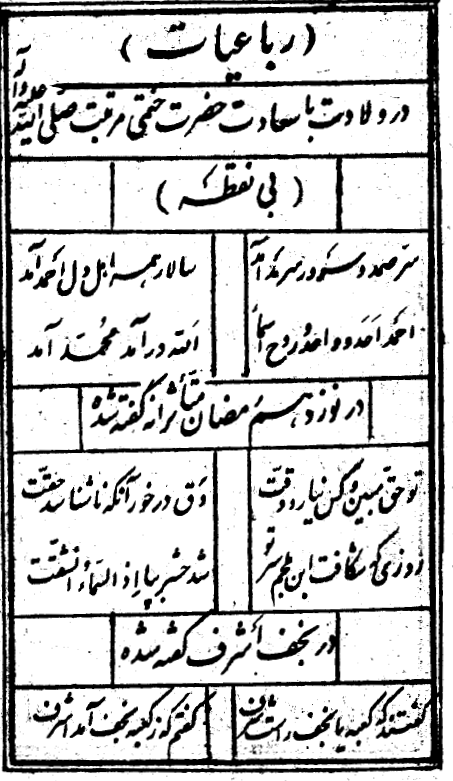 ( رباعیات )
در ولادت با سعادت حضرت ختمی مرتبت صلی الله علیه وآله
( بی نقطه )
سر صمد و سرمد آمد سالار همه اهل دل احمد آمد
احمد احد و واحد و روح اسماء الله در آمد محمد آمد
در نوزدهم رمضان متأثرانه گفته شده
تو حق مبین و کس نیارد دقت وَق در خور آنکه ناشناسد حقت
روزی که شکافت ابن ملجم سر تو شد حشر بپا اِذ السّماءُ انشقّت
در نجف أشرف گفته شده
گفتند که کعبه یا نجف راست شرف گفتم که ز کعبه نجف آمد اشرف